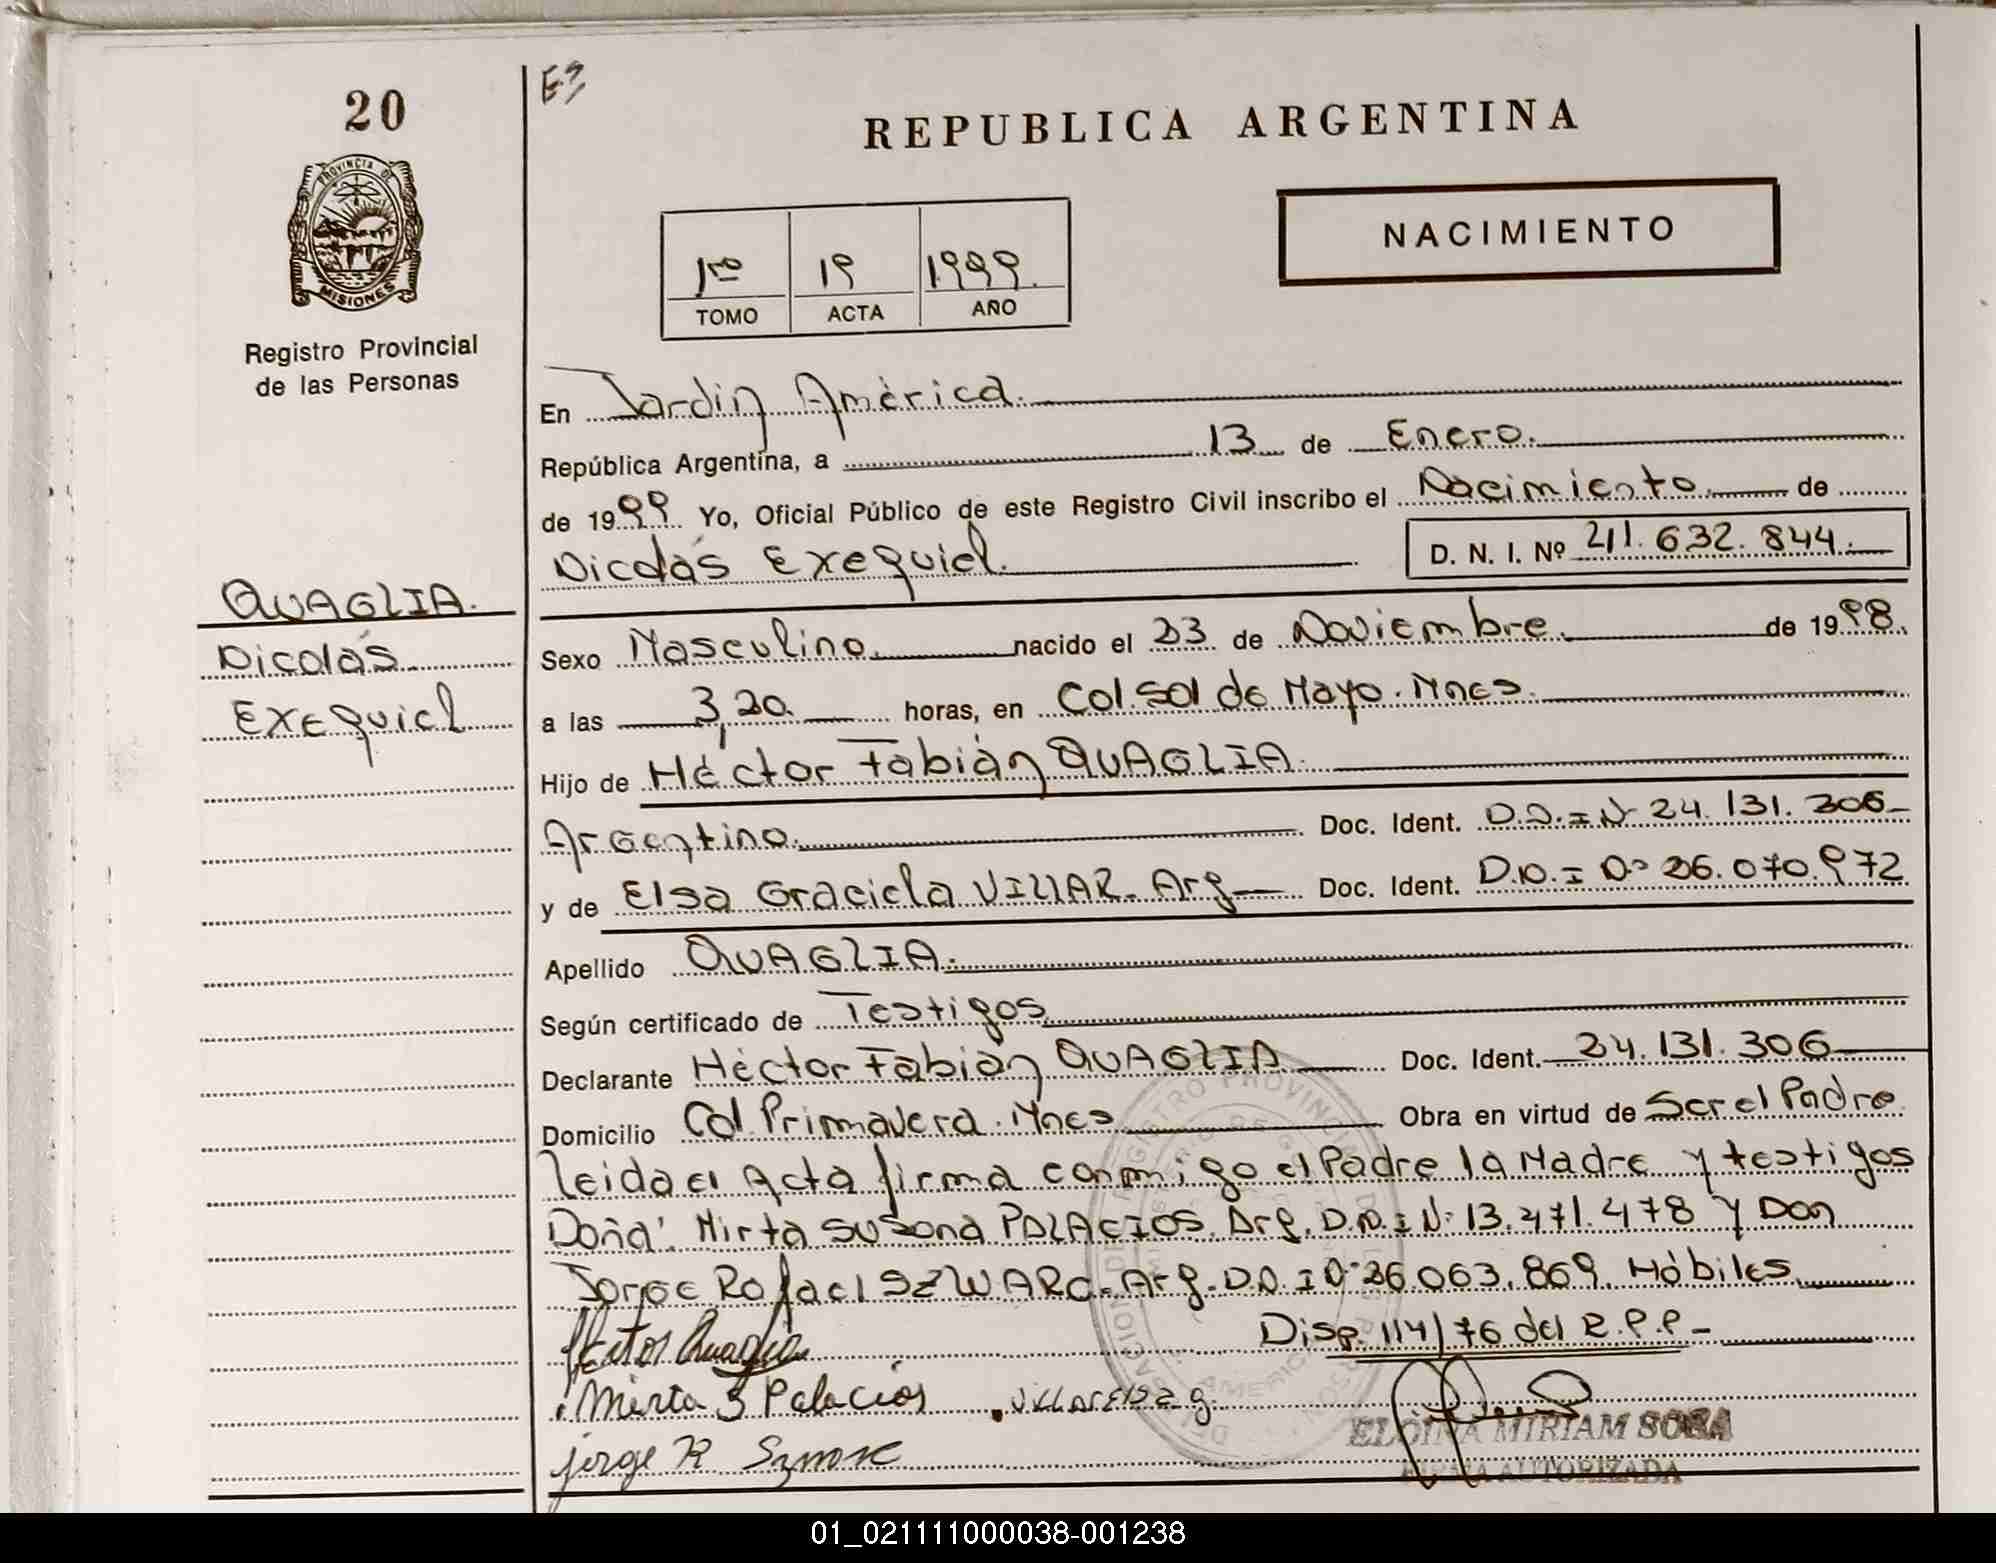 20
E3
REPUBLICA ARGENTINA
PROVINCIA DE
MISIONES
NACIMIENTO
1ro 19 1.999.
TOMO ACTA AÑO
Registro Provincial
de las Personas
En Jardín América.
República Argentina, a 13 de Enero.
de 1999 Yo, Oficial Público de este Registro Civil inscribo el Nacimiento de
Nicolás Exequiel. D. N. I. Nº 41.632.844.
QUAGLIA.
Nicolás
Exequiel
Sexo Masculino nacido el 23 de Noviembre de 1998.
a las 3,20 horas, en Col. Sol de Mayo. Mnes.
Hijo de Héctor Fabián QUAGLIA.
Argentino. Doc. Ident. D.N.I Nº 24.131.306
y de Elsa Graciela VILLAR. Arg Doc. Ident. D.N.I Nº 26.070.972
Apellido QUAGLIA.
Según certificado de Testigos
Declarante Héctor Fabián QUAGLIA Doc. Ident. 24.131.306
Domicilio Col Primavera. Mnes Obra en virtud de Ser el Padre
leida el Acta firma conmigo el Padre la Madre y testigos
Doña: Mirta Susana PALACIOS. Arg. D.N.I Nº 13.471.478 y Don
Jorge Rafael SZWARC. Arg. D.N.I Nº 26.063.869. Hábiles
Disp. 114/76 del R.P.P
Hector Quaglia
Mirta S Palacios Villar Elsa g.
jorge R
ELOINA MIRIAM SOSA
FIRMA AUTORIZADA
01_021111000038-001238